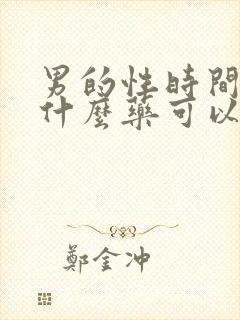 男的性時間
什麼藥可以
鄭金冲